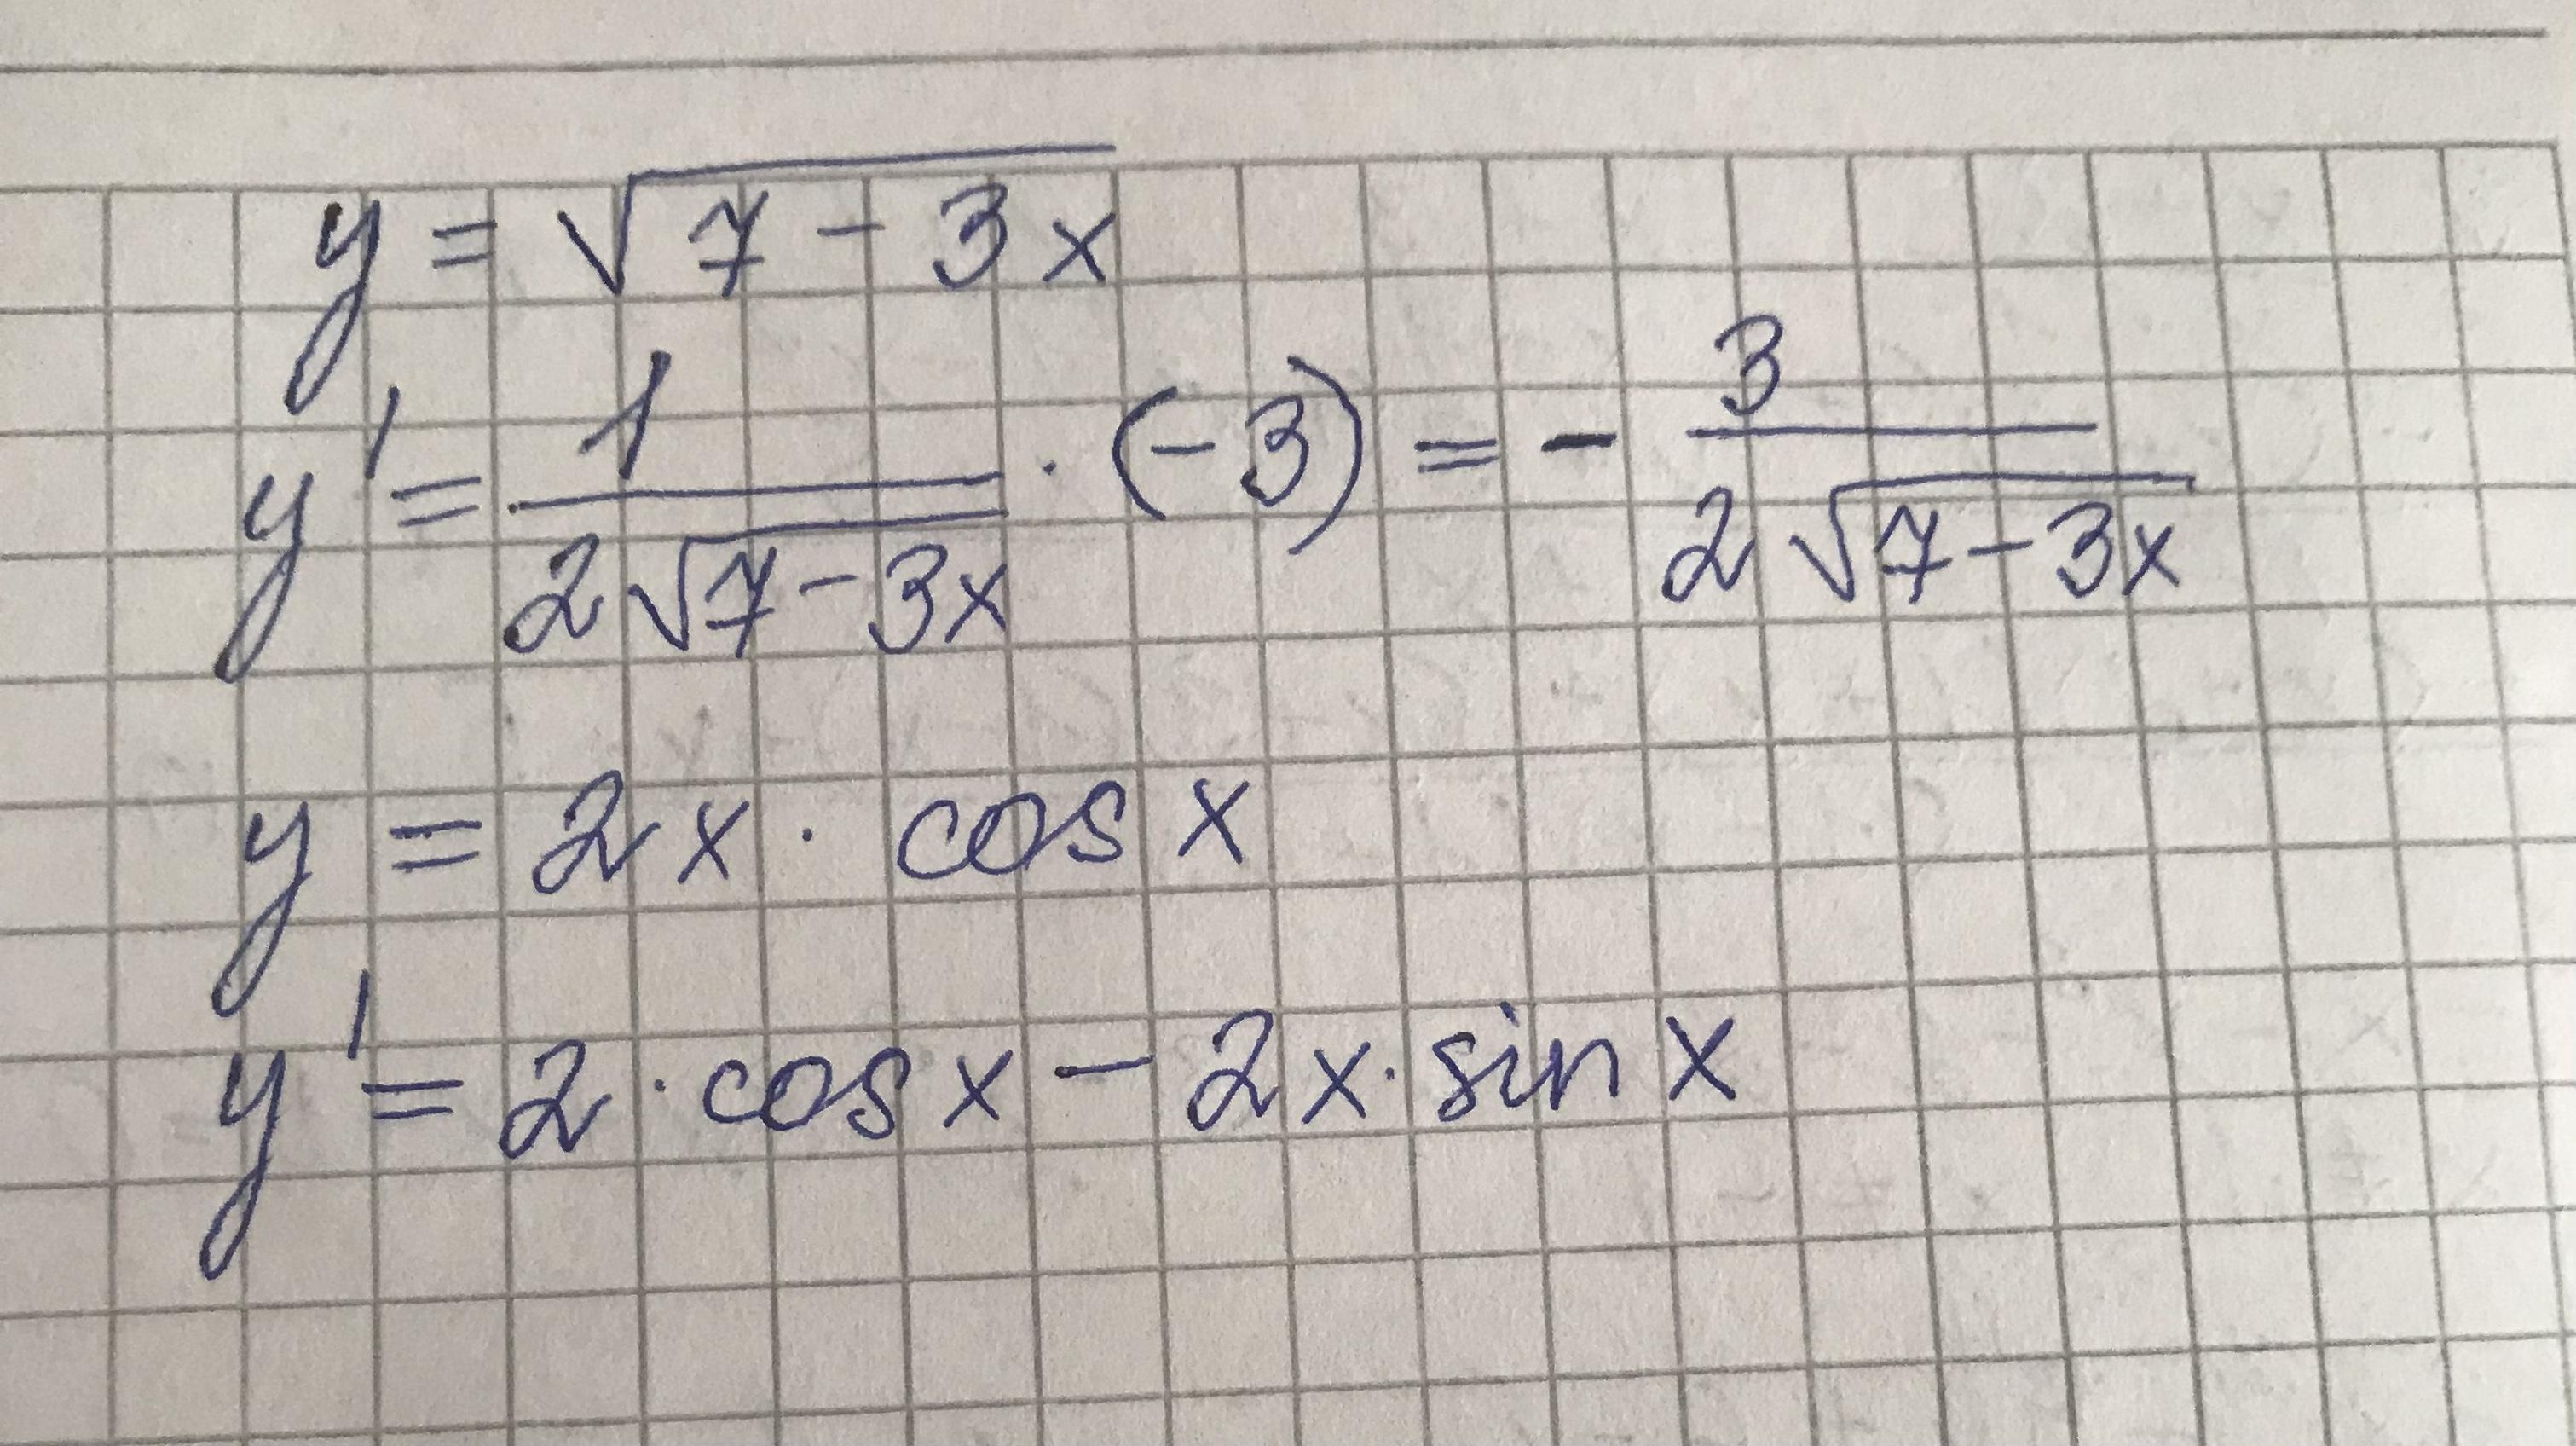 y = √(7 - 3x)
y' = 1/(2√(7 - 3x)) · (-3) = - 3/(2√(7 - 3x))
y = 2x · cos x
y' = 2 · cos x - 2x · sin x